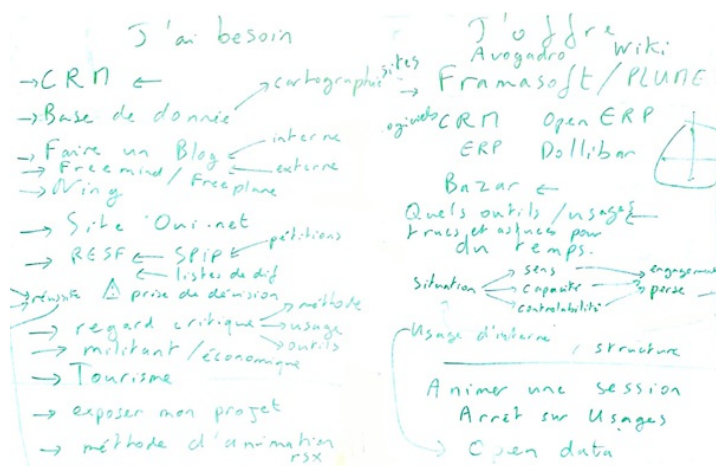 J'ai besoin
→ CRM ←
cartographie
→ Base de donnée
interne
→ Faire un Blog
externe
→ Freemind / Freeplane
→ Ning
→ Site Oui.net
pétitions
→ RESF ← SPIP
← listes de dif
réussite ⚠ prise de décision
méthode
→ regard critique → usage
outils
→ militant / économique
→ Tourisme
→ exposer mon projet
→ méthode d'animation
rsx
J'offre
Avogadro Wiki
sites
→ Framasoft / PLUME
logiciels CRM Open ERP
ERP Dollibar
Bazar ←
Quels outils / usages
trucs et astuces pour
du temps.
sens engagement
Situation capacité perse
controlabilité
Usage d'interne
/ structure
Animer une session
Arrêt sur Usages
→ Open data